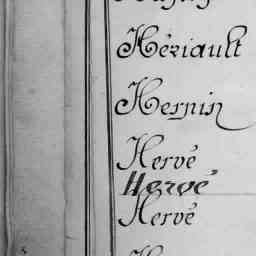 Hériault
Hernin
Hervé
Hervé
Hervé